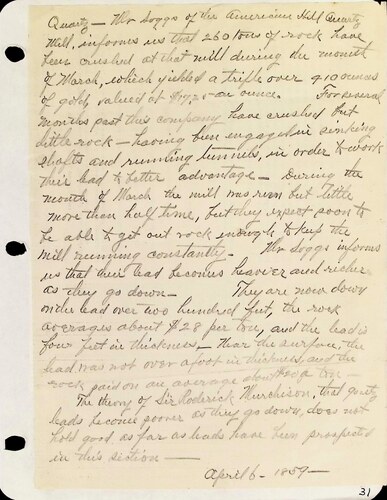 Quartz — Mr Loggs of the American Hill Quartz
Mill, informs us that 260 tons of rock have
been crushed at that mill during the month
of March, which yielded a trifle over 410 ounces
of gold, valued at $17.25 an ounce. For several
months past this company have crushed but
little rock — having been engaged in sinking
shafts and running tunnels, in order to work
their lead to better advantage — During the
month of March the mill was run but little
more than half time, but they expect soon to
be able to get out rock enough to keep the
mill running constantly. Mr Loggs informs
us that their lead becomes heavier and richer
as they go down — They are now down
on the lead over two hundred feet, the rock
averages about $28 per ton, and the lead is
four feet in thickness — Near the surface, the
lead was not over a foot in thickness, and the
rock paid on an average about a ton —
The theory of Sir Roderick Murchison, that quartz
leads become poorer as they go down, does not
hold good as far as leads have been prospected
in this section —
April 6 - 1859 —
31